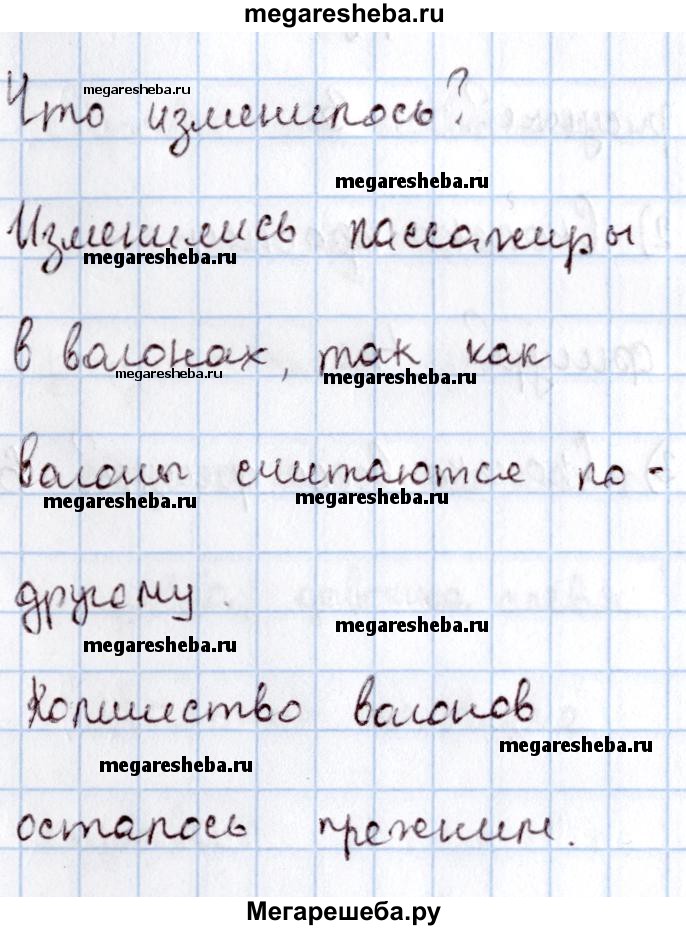 megaresheba.ru
megaresheba.ru
Что изменилось?
megaresheba.ru
Изменились пассажиры
megaresheba.ru
в вагонах, так как
megaresheba.ru megaresheba.ru
вагоны считаются по-
megaresheba.ru megaresheba.ru
другому.
megaresheba.ru megaresheba.ru
Количество вагонов
megaresheba.ru megaresheba.ru
осталось прежним.
Мегарешеба.ру